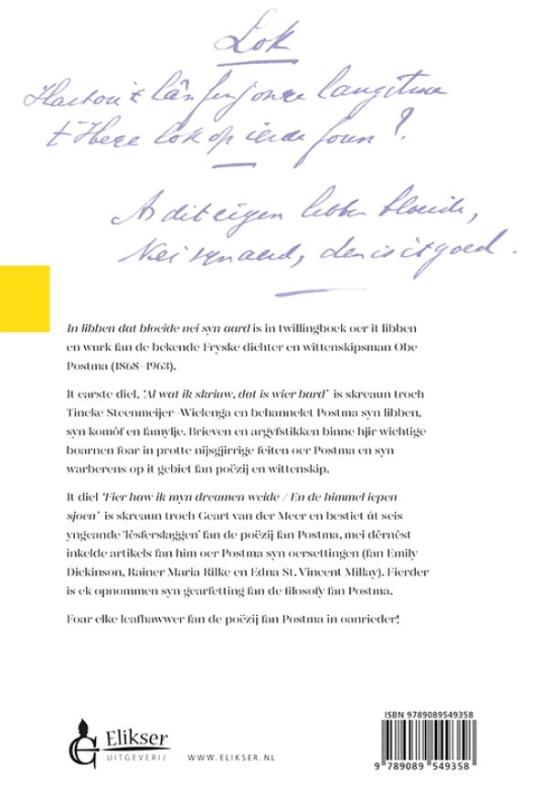 Lok
Hastou 't lân fen jonge langstme
't Hege lok op ierde foun?
As dit eigen libben bloeide,
Nei syn aerd, den is it goed.
In libben dat bloeide nei syn aard is in twillingboek oer it libben
en wurk fan de bekende Fryske dichter en wittenskipsman Obe
Postma (1868–1963).
It earste diel, 'Al wat ik skriuw, dat is wier bard' is skreaun troch
Tineke Steenmeijer–Wielenga en behannelet Postma syn libben,
syn komôf en famylje. Brieven en argyfstikken binne hjir wichtige
boarnen foar in protte nijsgjirrige feiten oer Postma en syn
warberens op it gebiet fan poëzij en wittenskip.
It diel 'Fier haw ik myn dreamen weide / En de himmel iepen
sjoen' is skreaun troch Geart van der Meer en bestiet út seis
yngeande 'lêsferslaggen' fan de poëzij fan Postma, mei dêrnêst
inkelde artikels fan him oer Postma syn oersettingen (fan Emily
Dickinson, Rainer Maria Rilke en Edna St. Vincent Millay). Fierder
is ek opnommen syn gearfetting fan de filosofy fan Postma.
Foar elke leafhawwer fan de poëzij fan Postma in oanrieder!
Elikser
UITGEVERIJ
WWW.ELIKSER.NL
ISBN 9789089549358
9 789089 549358